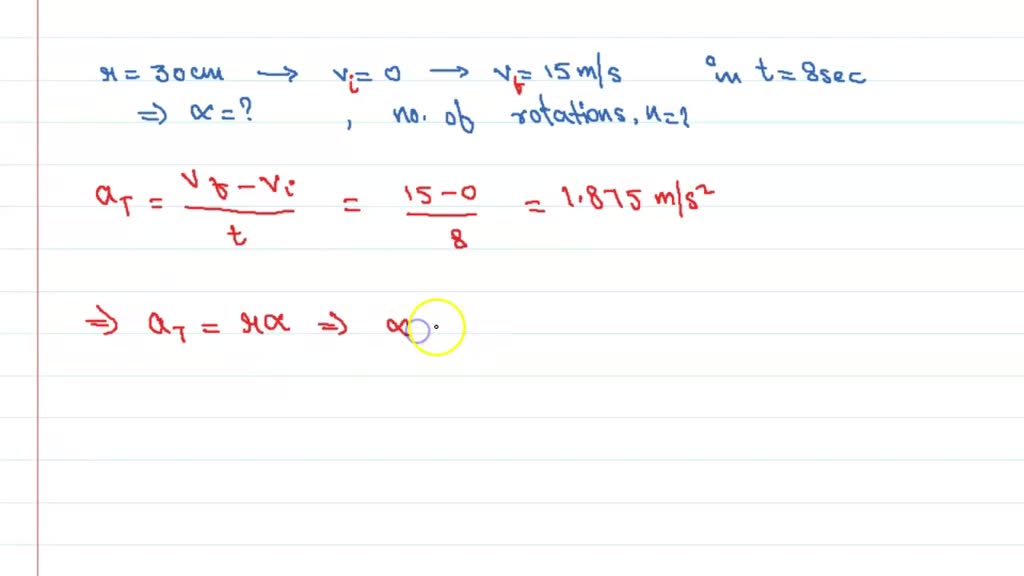 r = 30cm → vi = 0 → vf = 15 m/s in t = 8sec
⇒ α = ? , no. of rotations, n = ?
aT = vf - vi / t = 15 - 0 / 8 = 1.875 m/s²
⇒ aT = rα ⇒ α